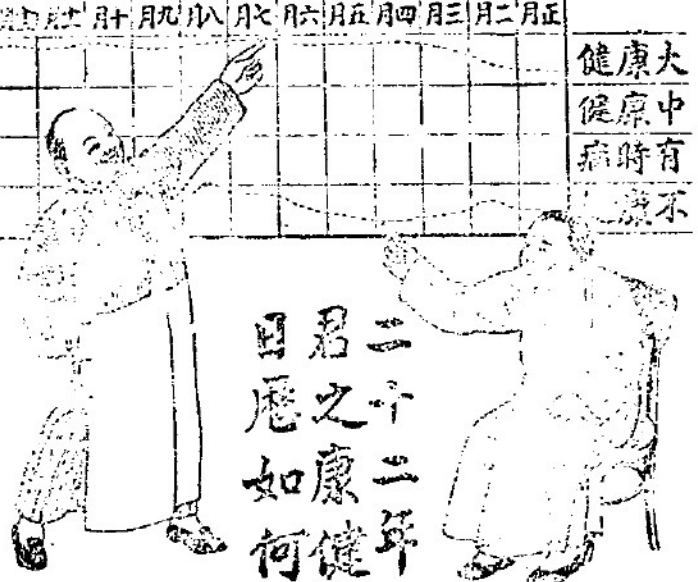 正月 二月 三月 四月 五月 六月 七月 八月 九月 十月 十一月
大康健
中康健
有時病
不康
二十二年
君之康健
日厯如何